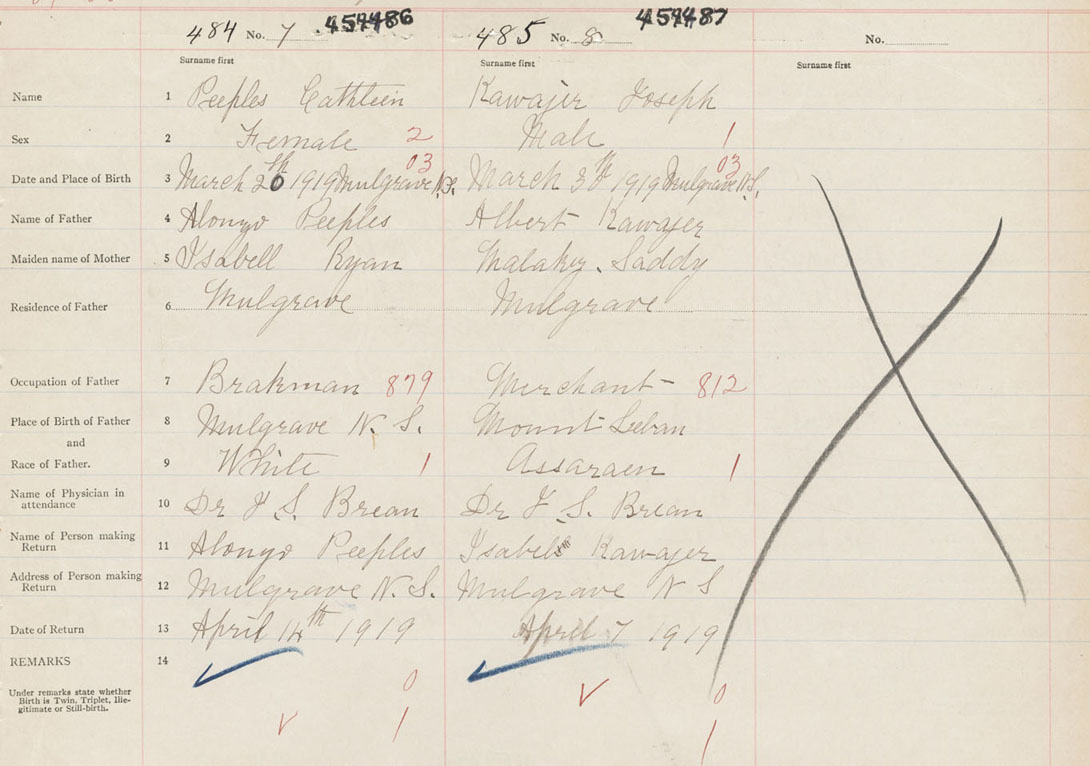 484 No. 7 459486 485 No. 8 459487 No.
Surname first Surname first Surname first
Name 1 Peeples Cathleen Kawajer Joseph
Sex 2 Female 2 Male 1
03 03
Date and Place of Birth 3 March 20th 1919 Mulgrave N.S. March 30th 1919 Mulgrave N.S.
Name of Father 4 Alonzo Peeples Albert Kawajer
Maiden name of Mother 5 Isabell Ryan Malakey. Saddy
Residence of Father 6 Mulgrave Mulgrave
Occupation of Father 7 Brakman 879 Merchant 812
Place of Birth of Father 8 Mulgrave N. S. Mount Leban
and
Race of Father. 9 White 1 Assaraen 1
Name of Physician in
attendance 10 Dr F. S. Brean Dr F. S. Brean
Name of Person making
Return 11 Alonzo Peeples Isabel Kawajer
Address of Person making
Return 12 Mulgrave N. S. Mulgrave N S
Date of Return 13 April 14th 1919 April 7 1919
REMARKS 14
Under remarks state whether
Birth is Twin, Triplet, Ille-
gitimate or Still-birth.
0 0
1 1